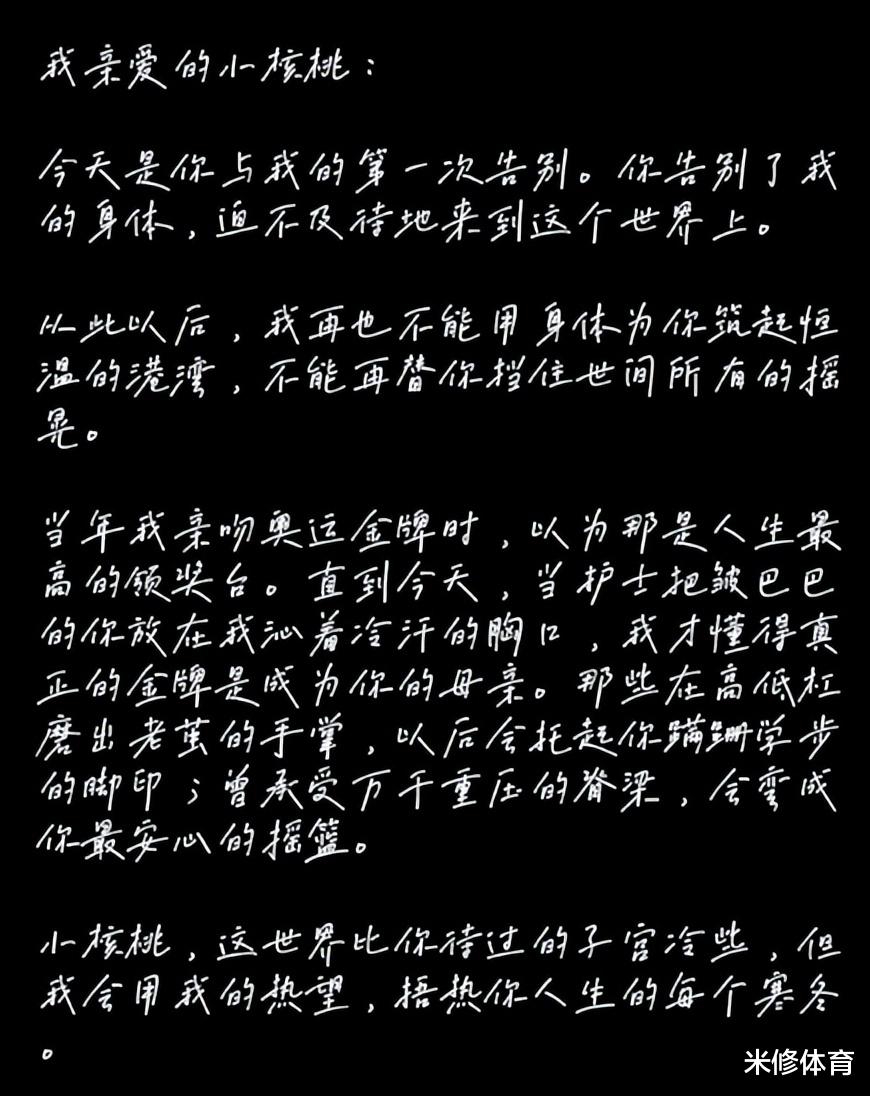 我亲爱的小核桃：
今天是你与我的第一次告别。你告别了我
的身体，迫不及待地来到这个世界上。
从此以后，我再也不能用身体为你筑起恒
温的港湾，不能再替你挡住世间所有的摇
晃。
当年我亲吻奥运金牌时，以为那是人生最
高的领奖台。直到今天，当护士把皱巴巴
的你放在我沁着冷汗的胸口，我才懂得真
正的金牌是成为你的母亲。那些在高低杠
磨出老茧的手掌，以后会托起你蹒跚学步
的脚印；曾承受万千重压的脊梁，会弯成
你最安心的摇篮。
小核桃，这世界比你待过的子宫冷些，但
我会用我的热望，捂热你人生的每个寒冬
。
米修体育